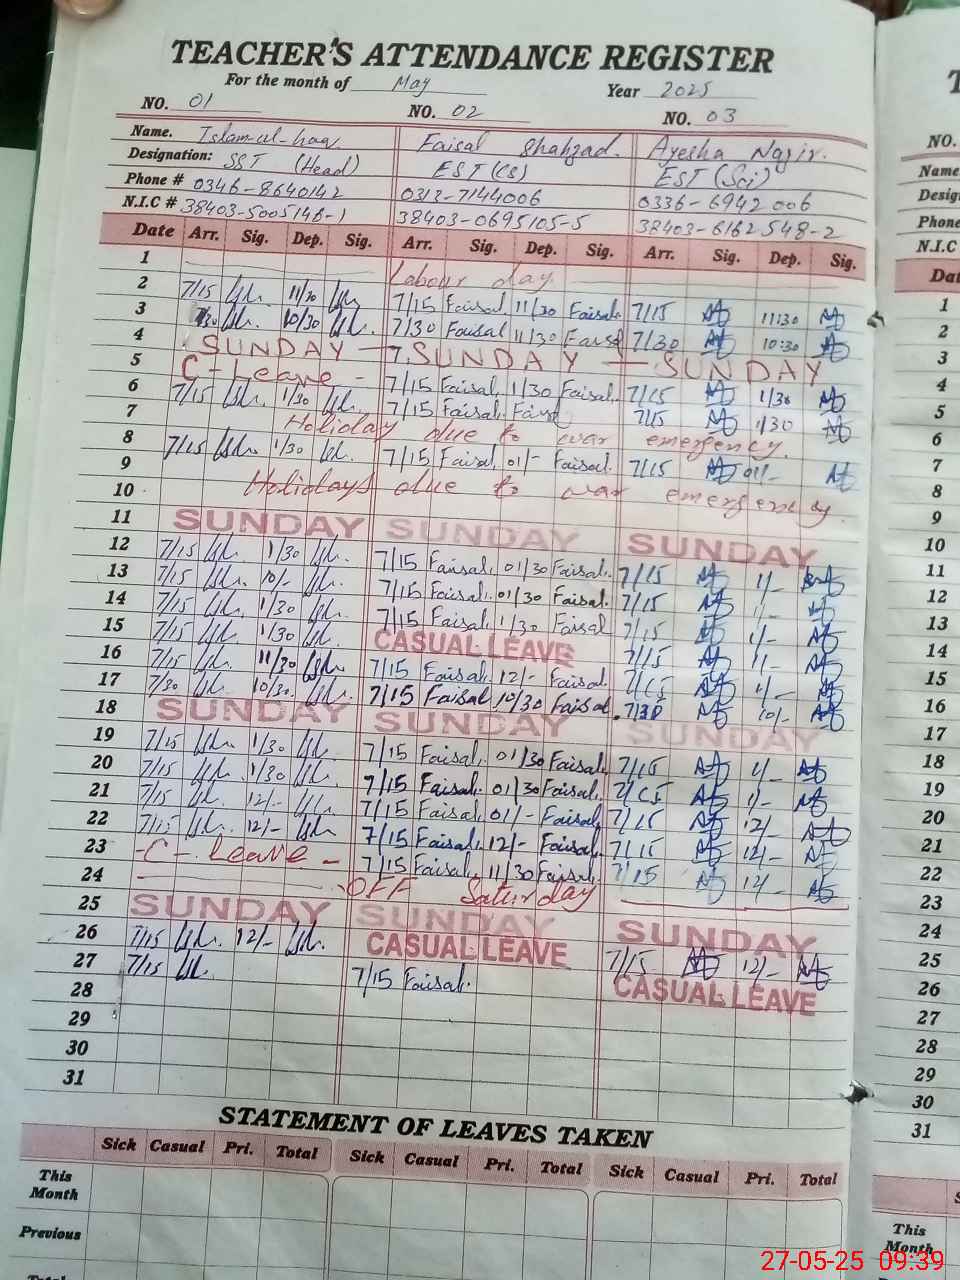 TEACHER'S ATTENDANCE REGISTER
For the month of May Year 2025
NO. 01 NO. 02 NO. 03
Name. Islam-ul-haq Faisal Shahzad. Ayesha Nazir.
Designation: SST (Head) EST (CS) EST (Sci)
Phone # 0346-8640142 0313-7144006 0336-6942006
N.I.C # 38403-5005146-1 38403-0695105-5 38403-6162548-2
Date Arr. Sig. Dep. Sig. Arr. Sig. Dep. Sig. Arr. Sig. Dep. Sig.
1 Labour day
2 7/15 11/30 7/15 Faisal 11/30 Faisal 7/15 11:30
3 7/30 10/30 7/30 Faisal 11/30 Faisal 7/30 10:30
4 SUNDAY SUNDAY SUNDAY
5 C-Leave - 7/15 Faisal 1/30 Faisal 7/15 1/30
6 7/15 1/30 7/15 Faisal Faisal 7/15 1/30
7 Holiday due to war emergency.
8 7/15 1/30 7/15 Faisal 01/- Faisal 7/15 01/-
9 Holidays due to war emergency
10
11 SUNDAY SUNDAY SUNDAY
12 7/15 1/30 7/15 Faisal 01/30 Faisal. 7/15 1/-
13 7/15 10/- 7/15 Faisal. 01/30 Faisal. 7/15 1/-
14 7/15 1/30 7/15 Faisal 1/30 Faisal 7/15 1/-
15 7/15 1/30 CASUAL LEAVE 7/15 1/-
16 7/15 11/30 7/15 Faisal 12/- Faisal 7/15 1/-
17 7/30 10/30 7/15 Faisal 10/30 Faisal. 7/30 10/-
18 SUNDAY SUNDAY SUNDAY
19 7/15 1/30 7/15 Faisal, 01/30 Faisal. 7/15 1/-
20 7/15 1/30 7/15 Faisal. 01/30 Faisal. 7/15 1/-
21 7/15 12/- 7/15 Faisal 01/- Faisal 7/15 12/-
22 7/15 12/- 7/15 Faisal, 12/- Faisal. 7/15 12/-
23 -C-Leave - 7/15 Faisal, 11/30 Faisal. 7/15 12/-
24 OFF Saturday
25 SUNDAY SUNDAY SUNDAY
26 7/15 12/- CASUAL LEAVE 7/15 12/-
27 7/15 7/15 Faisal. CASUAL LEAVE
28
29
30
31
STATEMENT OF LEAVES TAKEN
Sick Casual Pri. Total Sick Casual Pri. Total Sick Casual Pri. Total
This
Month
Previous
NO.
Name
Phone
N.I.C
1
2
3
4
5
6
7
8
9
10
11
12
13
14
15
16
17
18
19
20
21
22
23
24
25
26
27
28
29
30
31
This
Month
27-05-25 09:39